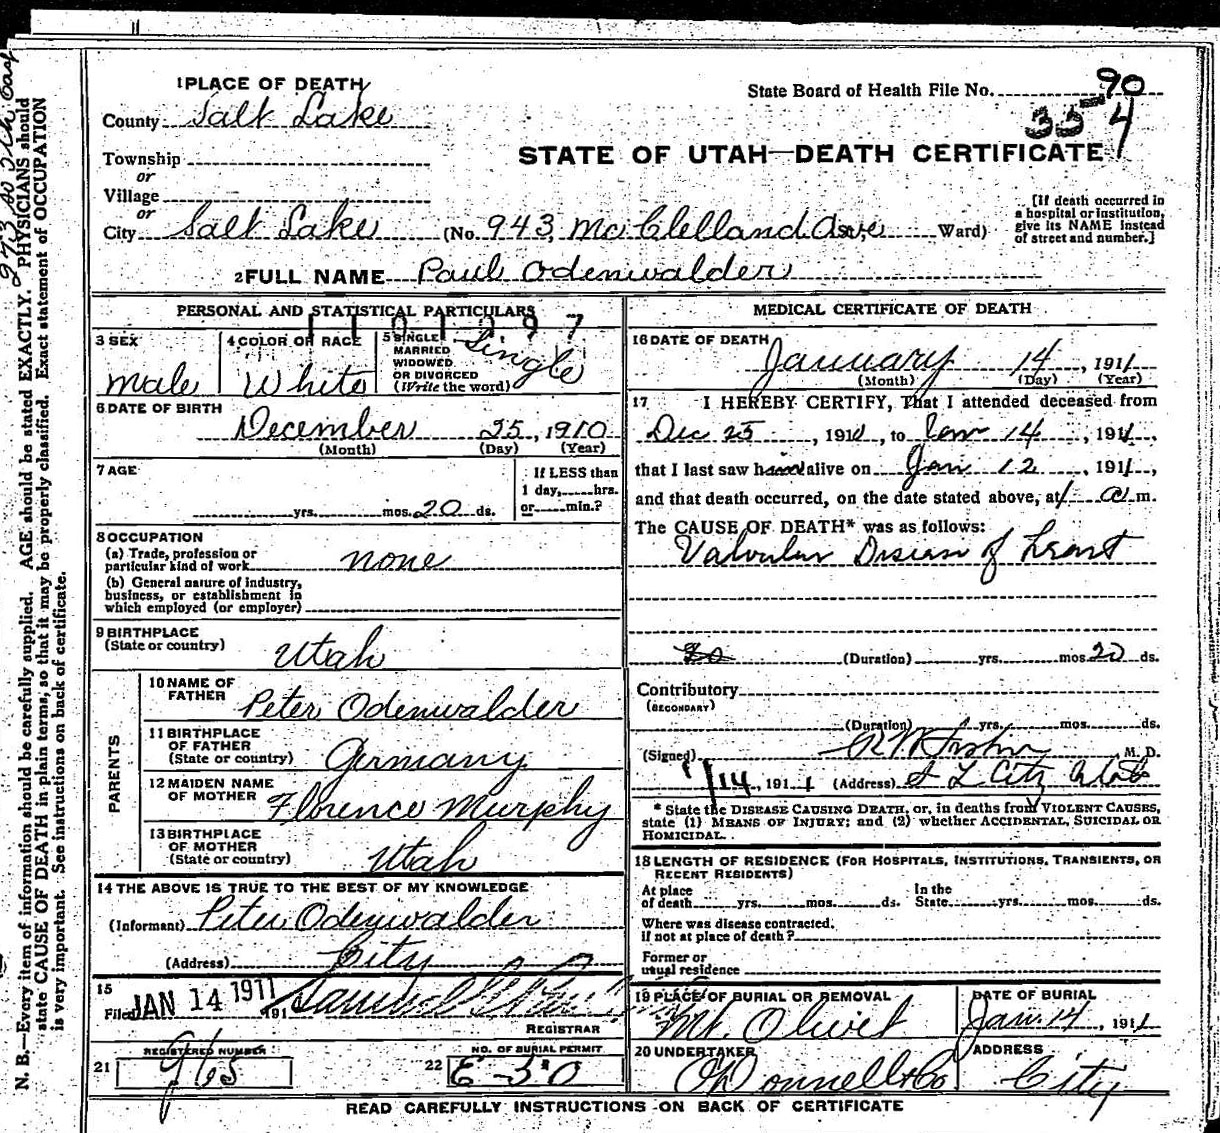 1 PLACE OF DEATH
State Board of Health File No. 90
County Salt Lake
354
Township
STATE OF UTAH—DEATH CERTIFICATE
or
Village
or
City Salt Lake (No. 943, McClelland Ave Ward)
[If death occurred in
a hospital or institution,
give its NAME instead
of street and number.]
2 FULL NAME Paul Odenwalder
PERSONAL AND STATISTICAL PARTICULARS
1101097
3 SEX
male
4 COLOR OR RACE
White
5 SINGLE
MARRIED
WIDOWED
OR DIVORCED
(Write the word)
Single
6 DATE OF BIRTH
December 25, 1910
(Month) (Day) (Year)
7 AGE
yrs. mos. 20 ds.
If LESS than
1 day, hrs.
or min.?
8 OCCUPATION
(a) Trade, profession or
particular kind of work none
(b) General nature of industry,
business, or establishment in
which employed (or employer)
9 BIRTHPLACE
(State or country)
Utah
PARENTS
10 NAME OF
FATHER
Peter Odenwalder
11 BIRTHPLACE
OF FATHER
(State or country)
Germany
12 MAIDEN NAME
OF MOTHER
Florence Murphy
13 BIRTHPLACE
OF MOTHER
(State or country)
Utah
14 THE ABOVE IS TRUE TO THE BEST OF MY KNOWLEDGE
(Informant) Peter Odenwalder
(Address) City
15
Filed JAN 14 1911 191
REGISTRAR
21
REGISTERED NUMBER
965
22
NO. OF BURIAL PERMIT
E-30
MEDICAL CERTIFICATE OF DEATH
16 DATE OF DEATH
January 14, 1911
(Month) (Day) (Year)
17 I HEREBY CERTIFY, That I attended deceased from
Dec 25, 1910, to Jan 14, 1911,
that I last saw him alive on Jan 12, 1911,
and that death occurred, on the date stated above, at 1 a m.
The CAUSE OF DEATH* was as follows:
Valvular Disease of heart
(Duration) yrs. mos. 20 ds.
Contributory
(SECONDARY)
(Duration) yrs. mos. ds.
(Signed) M. D.
1/14, 1911 (Address) S L City Utah
* State the DISEASE CAUSING DEATH, or, in deaths from VIOLENT CAUSES,
state (1) MEANS OF INJURY; and (2) whether ACCIDENTAL, SUICIDAL OR
HOMICIDAL.
18 LENGTH OF RESIDENCE (FOR HOSPITALS, INSTITUTIONS, TRANSIENTS, OR
RECENT RESIDENTS)
At place
of death yrs. mos. ds.
In the
State yrs. mos. ds.
Where was disease contracted.
if not at place of death?
Former or
usual residence
19 PLACE OF BURIAL OR REMOVAL
Mt. Olivet
DATE OF BURIAL
Jan. 14, 1911
20 UNDERTAKER
O'Donnell & Co
ADDRESS
City
READ CAREFULLY INSTRUCTIONS ON BACK OF CERTIFICATE
N. B.—Every item of information should be carefully supplied. AGE should be stated EXACTLY. PHYSICIANS should
state CAUSE OF DEATH in plain terms, so that it may be properly classified. Exact statement of OCCUPATION
is very important. See instructions on back of certificate.